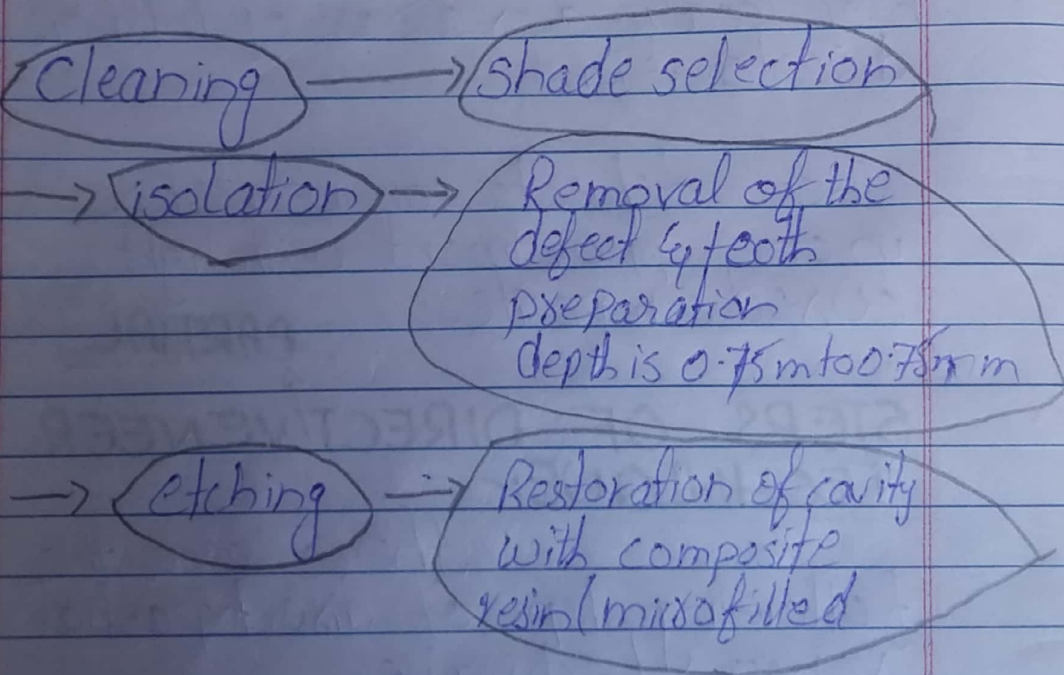 Cleaning → shade selection
→ isolation → Removal of the
defect & tooth
preparation
depth is 0.75 m to 0.75 mm
→ etching → Restoration of cavity
with composite
resin (microfilled